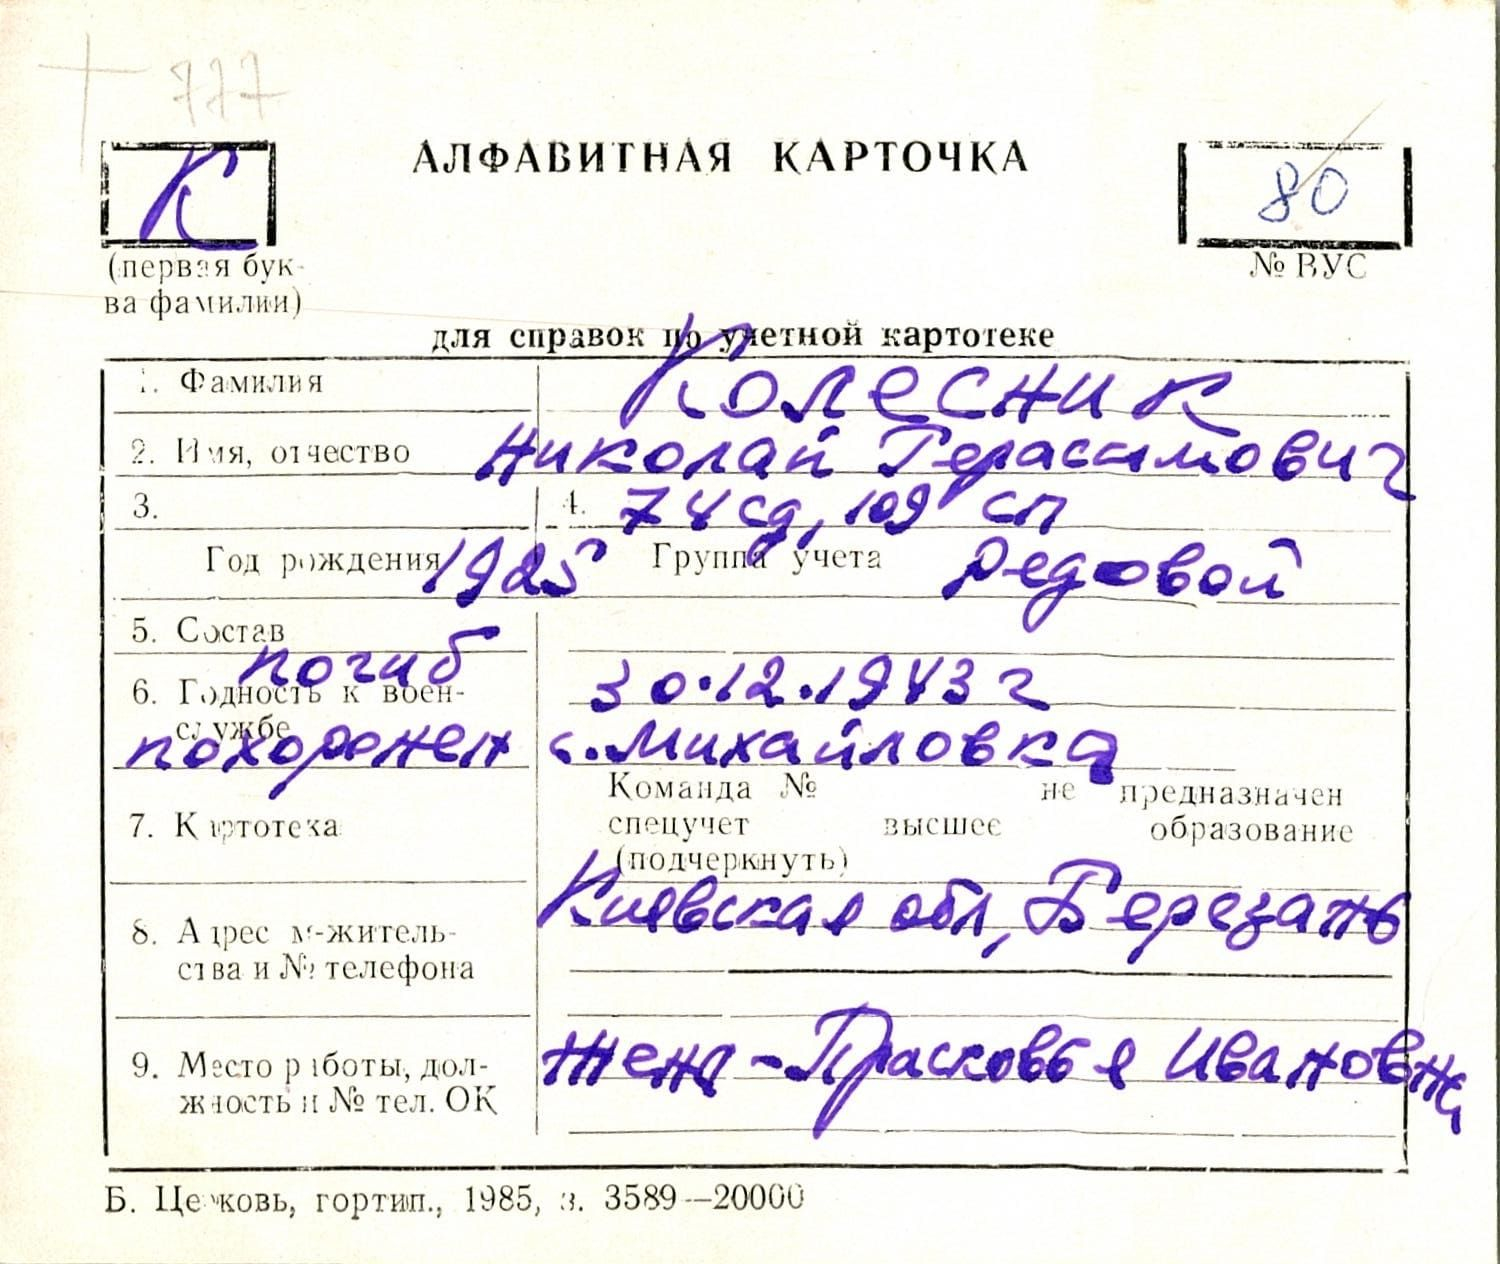 777
К
АЛФАВИТНАЯ КАРТОЧКА
80
(первая бук-
ва фамилии)
№ ВУС
для справок по учетной картотеке
1. Фамилия Колесник
2. Имя, отчество Николай Герасимович
3. 4. 74 сд, 109 сп
Год рождения 1925 Группа учета редовой
5. Состав
погиб 30.12.1943 г
6. Годность к воен-
службе
похоронен с. Михайловка
7. Картотека
Команда № не предназначен
спецучет высшее образование
(подчеркнуть)
Киевская обл, Березань
8. Адрес м-житель-
ства и № телефона
9. Место работы, дол-
жность и № тел. ОК
жена - Прасковья Ивановна
Б. Церковь, гортип., 1985, з. 3589—20000